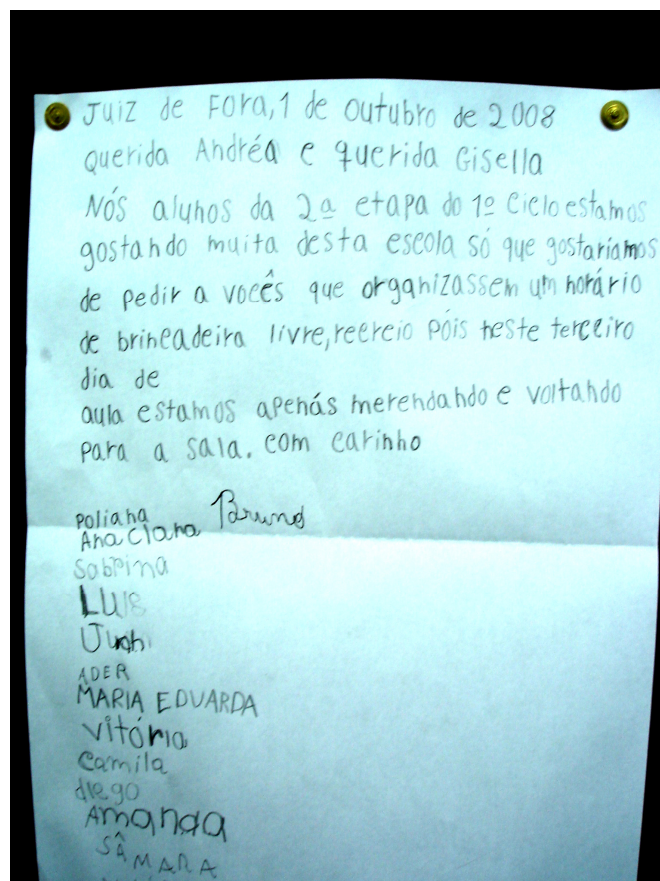 Juiz de Fora, 1 de outubro de 2008
querida Andréa e querida Gisella
Nós alunos da 2ª etapa do 1º Ciclo estamos
gostando muita desta escola só que gostaríamos
de pedir a vocês que organizassem um horário
de brincadeira livre, recreio póis neste terceiro
dia de
aula estamos apenás merendando e voltando
para a sala. com carinho
poliana Bruno
Ana Clara
Sabrina
LUIS
ADER
MARIA EDUARDA
vitória
camila
diego
Amanda
SÂMARA